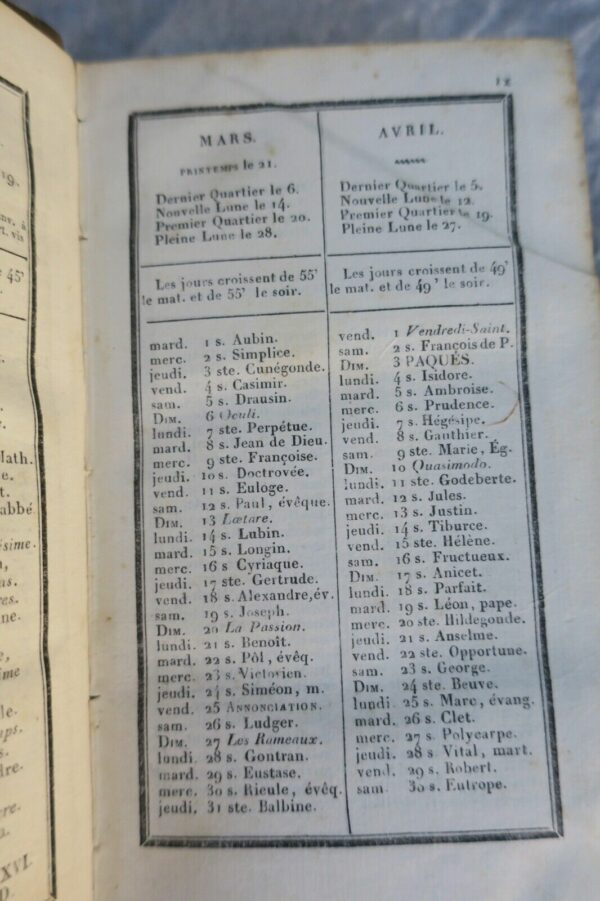 19.
nv. à
t. vis
e 45'
Math.
e.
t.
abbé
sime.
n,
ns.
res.
ne.
e,
sime
le.
ups.
s.
dre-
ere.
XVI.
D.
IX
MARS.
PRINTEMPS le 21.
Dernier Quartier le 6.
Nouvelle Lune le 14.
Premier Quartier le 20.
Pleine Lune le 28.
Les jours croissent de 55'
le mat. et de 55' le soir.
mard. 1 s. Aubin.
merc. 2 s. Simplice.
jeudi. 3 ste. Cunégonde.
vend. 4 s. Casimir.
sam. 5 s. Drausin.
DIM. 6 Oculi.
lundi. 7 ste. Perpétue.
mard. 8 s. Jean de Dieu.
merc. 9 ste. Françoise.
jeudi. 10 s. Doctrovée.
vend. 11 s. Euloge.
sam. 12 s. Paul, évêque.
DIM. 13 Lœtare.
lundi. 14 s. Lubin.
mard. 15 s. Longin.
merc. 16 s Cyriaque.
jeudi. 17 ste. Gertrude.
vend. 18 s. Alexandre, év.
sam. 19 s. Joseph.
DIM. 20 La Passion.
lundi. 21 s. Benoît.
mard. 22 s. Pôl, évêq.
merc. 23 s. Victorien.
jeudi. 24 s. Siméon, m.
vend. 25 ANNONCIATION.
sam. 26 s. Ludger.
DIM. 27 Les Rameaux.
lundi. 28 s. Gontran.
mard. 29 s. Eustase.
merc. 30 s. Rieule, évêq.
jeudi. 31 ste. Balbine.
AVRIL.
Dernier Quartier le 5.
Nouvelle Lune le 12.
Premier Quartier le 19.
Pleine Lune le 27.
Les jours croissent de 49'
le mat. et de 49' le soir.
vend. 1 Vendredi-Saint.
sam. 2 s. François de P.
DIM. 3 PAQUES.
lundi. 4 s. Isidore.
mard. 5 s. Ambroise.
merc. 6 s. Prudence.
jeudi. 7 s. Hégésipe.
vend. 8 s. Gauthier.
sam. 9 ste. Marie, Ég.
DIM. 10 Quasimodo.
lundi. 11 ste. Godeberte.
mard. 12 s. Jules.
merc. 13 s. Justin.
jeudi. 14 s. Tiburce.
vend. 15 ste. Hélène.
sam. 16 s. Fructueux.
DIM. 17 s. Anicet.
lundi. 18 s. Parfait.
mard. 19 s. Léon, pape.
merc. 20 ste. Hildegonde.
jeudi. 21 s. Anselme.
vend. 22 ste. Opportune.
sam. 23 s. George.
DIM. 24 ste. Beuve.
lundi. 25 s. Marc, évang.
mard. 26 s. Clet.
merc. 27 s. Polycarpe.
jeudi. 28 s Vital, mart.
vend. 29 s. Robert.
sam. 30 s. Eutrope.